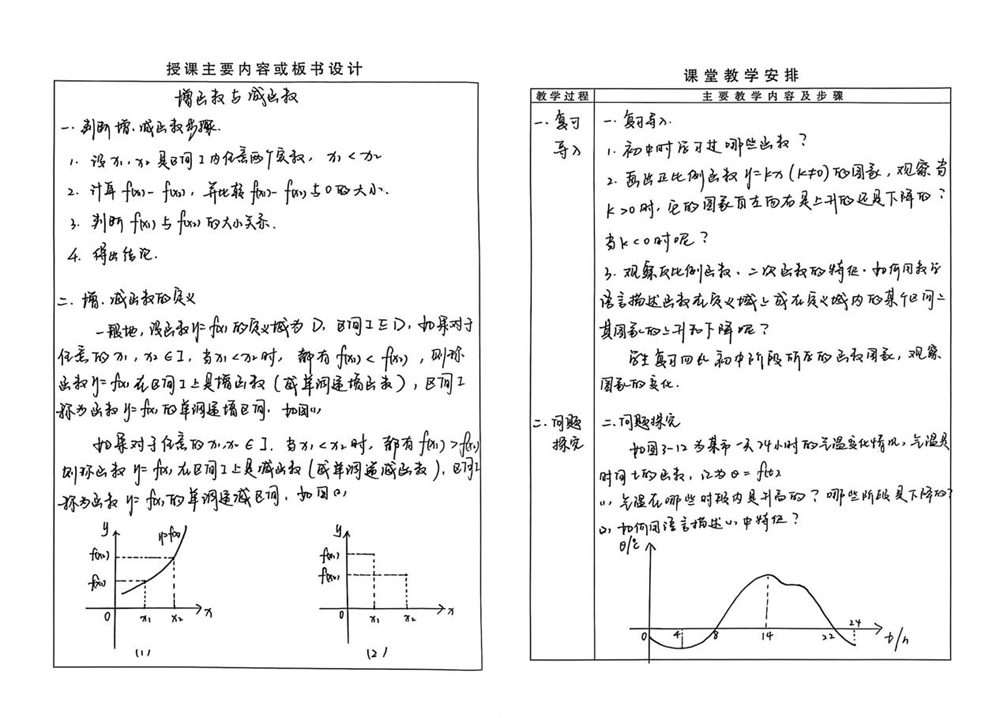 授课主要内容或板书设计
增函数与减函数
一.判断增.减函数步骤.
1. 设x₁,x₂是区间I内任意两个实数, x₁<x₂
2. 计算f(x₁)-f(x₂), 并比较f(x₁)-f(x₂)与0的大小.
3. 判断f(x₁)与f(x₂)的大小关系.
4. 得出结论.
二. 增.减函数的定义
一般地,设函数y=f(x)的定义域为D, 区间I⊆D, 如果对于
任意的x₁,x₂∈I, 当x₁<x₂时, 都有f(x₁)<f(x₂), 则称
函数y=f(x)在区间I上是增函数(或单调递增函数), 区间I
称为函数y=f(x)的单调递增区间. 如图(1)
如果对于任意的x₁,x₂∈I. 当x₁<x₂时, 都有f(x₁)>f(x₂)
则称函数y=f(x)在区间I上是减函数(或单调递减函数), 区间I
称为函数y=f(x)的单调递减区间, 如图(2)
y
y=f(x)
f(x₂)
f(x₁)
0 x₁ x₂ x
(1)
y
f(x₁)
f(x₂)
0 x₁ x₂ x
(2)
课堂教学安排
教学过程 主要教学内容及步骤
一.复习
导入
一.复习导入.
1. 初中时学习过哪些函数?
2. 画出正比例函数y=kx(k≠0)的图象, 观察当
k>0时, 它的图象自左向右是上升的还是下降的?
当k<0时呢?
3. 观察反比例函数、二次函数的特征. 如何用数学
语言描述函数在定义域上或在定义域内的某个区间上
其图象的上升和下降呢?
学生复习回忆初中阶段所学的函数图象, 观察
图象的变化.
二.问题
探究
二.问题探究
如图3-12为某市一天24小时的气温变化情况, 气温是
时间t的函数, 记为θ=f(t)
(1) 气温在哪些时段内是升高的? 哪些阶段是下降的?
(2) 如何用语言描述(1)中特征?
θ/℃
0 4 8 14 22 24 t/h